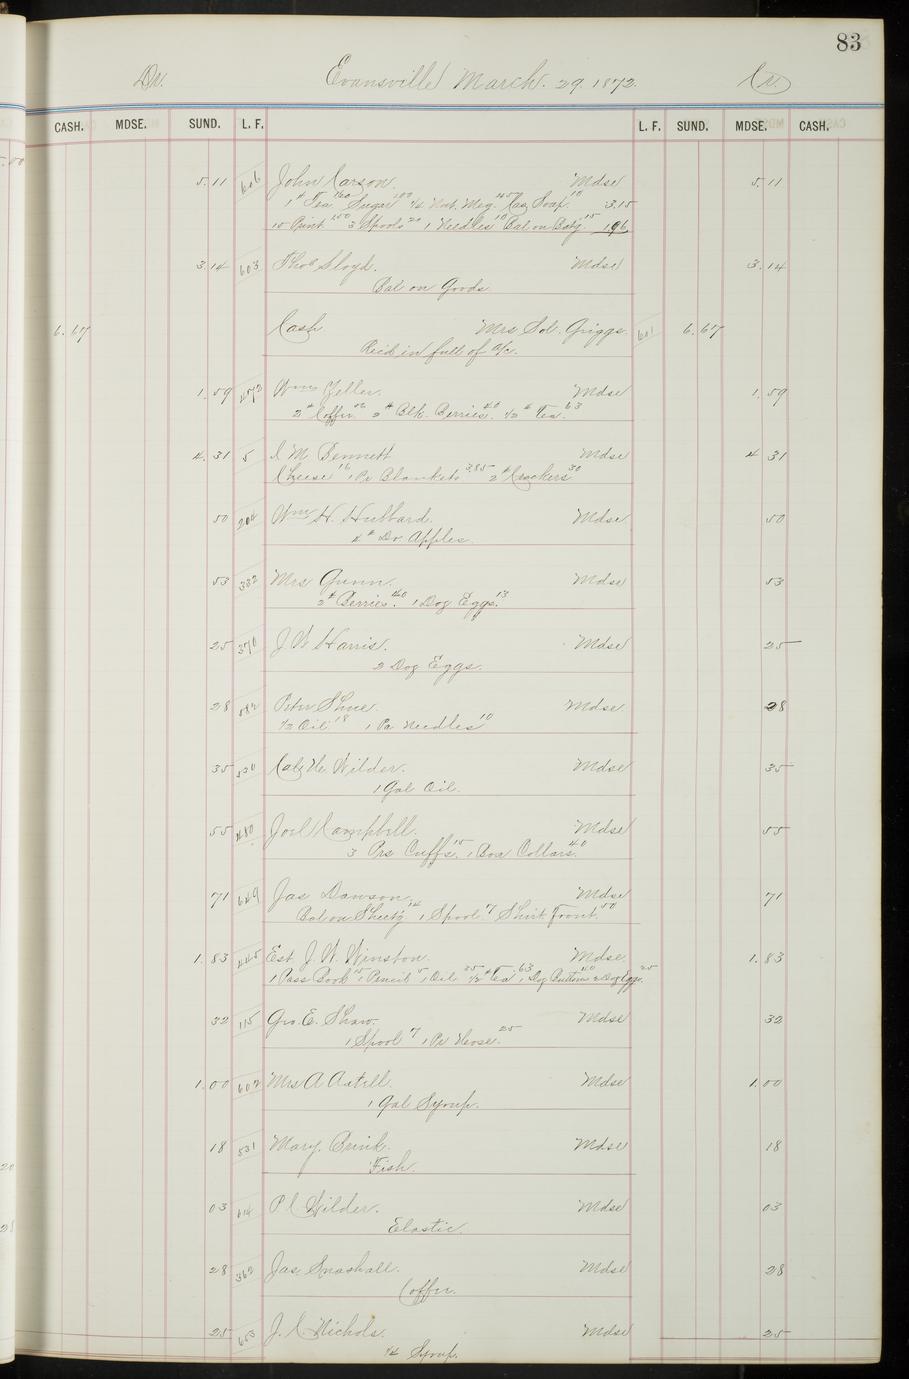 83
Dr. Evansville March. 29. 1872. Cr.
CASH. MDSE. SUND. L. F. L. F. SUND. MDSE. CASH.
5.11 606 John Carson. Mdse 5.11
1 # Tea 160 Sugar 100 Nut. Meg. Soap. 10 3.15
10 Print 150 3 Spools 20 1 Needles 10 Bal on 15 1.96
3.14 603 Thos Lloyd. Mdse 3.14
Bal on Goods
6.67 Cash Mrs Sol. Griggs. 601 6.67
Recd in full of a/c.
1.59 Wm Zeller. Mdse 1.59
2 # Coffee. 56 2 # Blk. Berries. 40 1/2 # Tea. 63
4.31 5 I M Bennett Mdse 4 31
Cheese 16 1 Pr Blankets 3.85 2 # Crackers 30
50 204 Wm H. Hubbard. Mdse 50
4 # Dr. Apples.
53 332 Mrs Gunn. Mdse 53
2 # Berries. 40 1 Doz Eggs. 13
25 370 J W Harris. Mdse 25
2 Doz Eggs.
28 582 Peter Shue Mdse 28
1/2 Oil 18 1 Pa Needles 10
35 530 Wilder. Mdse 35
1 Gal Oil.
55 480 Joel Campbell. Mdse 55
3 Prs Cuffs. 15 1 Box Collars. 40
71 649 Jas Dawson. Mdse 71
Bal on Sheetg 14 1 Spool 7 Shirt Front. 50
1.83 445 Est J. W. Winston. Mdse. 1.83
1 Pass Book 15 1 Pencil 5 1 Oil 35 1/2 # Tea 63 1 Doz Buttons 40 2 Doz Eggs. 25
32 115 Geo. E. Shaw. Mdse 32
1 Spool 7 1 Pr Hose. 25
1.00 602 Mrs A Mdse 1.00
1 Gal Syrup.
18 531 Mary. Brink. Mdse 18
Fish.
03 614 P C Wilder. Mdse 03
Elastic.
28 362 Jas. Snashall. Mdse 28
Coffee.
25 653 J. C. Nichols. Mdse 25
1/4 Syrup.